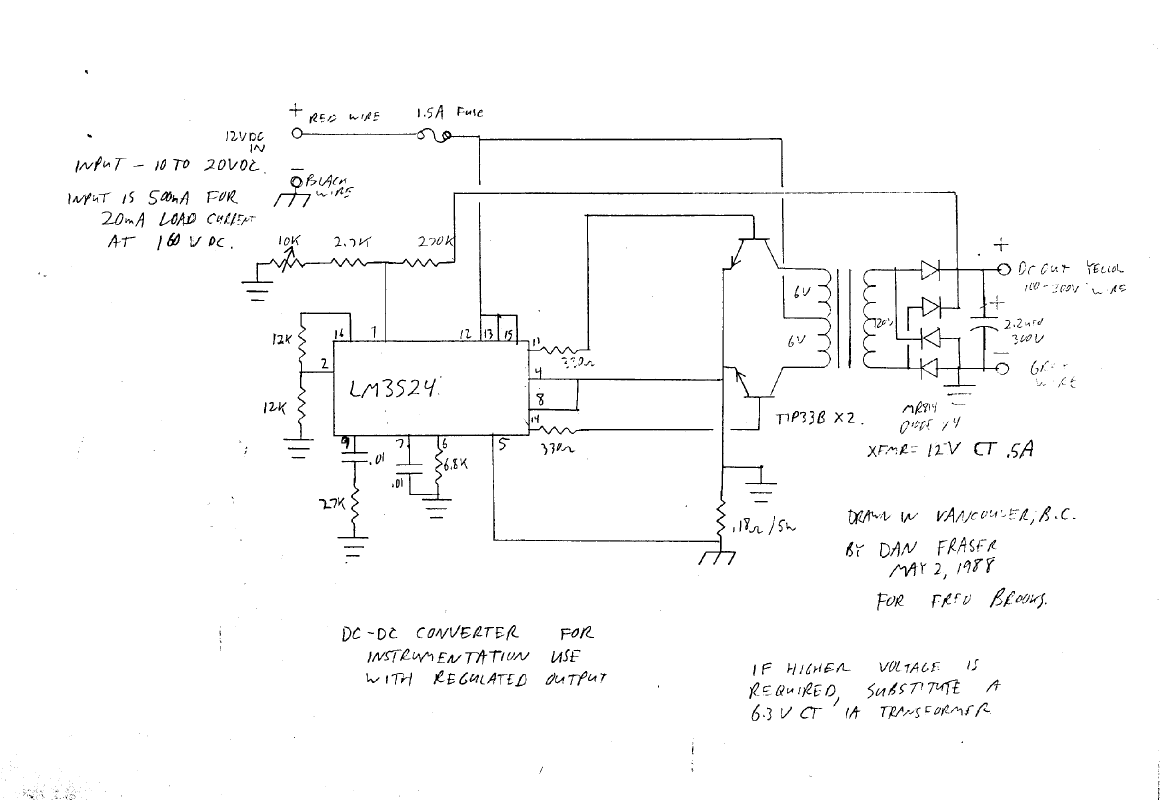 + RED WIRE 1.5A FUSE
12VDC
IN
INPUT - 10 TO 20VDC.
- BLACK
WIRE
INPUT IS 500mA FOR
20mA LOAD CURRENT
AT 160 VDC.
10K 2.7K 270K
+
DC OUT YELLOW
100-300V WIRE
6V
6V
120V
+
2.2 mfd
300V
-
WIRE
12K
16 1 12 13 15
11
330Ω
2
LM3524
4
8
12K
14
330Ω
9 7 6 5
.01
.01
6.8K
27K
TIP33B X2.
MR814
DIODE X4
XFMR = 12V CT .5A
.18Ω/5W
DRAWN IN VANCOUVER, B.C.
BY DAN FRASER
MAY 2, 1988
FOR FRED BROOKS.
DC-DC CONVERTER FOR
INSTRUMENTATION USE
WITH REGULATED OUTPUT
IF HIGHER VOLTAGE IS
REQUIRED, SUBSTITUTE A
6.3 V CT 1A TRANSFORMER